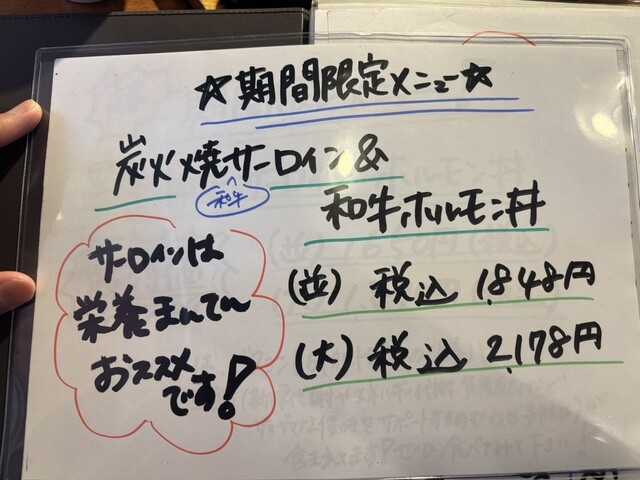 ☆期間限定メニュー☆
炭火焼サーロイン&
和牛
和牛ホルモン丼
(並) 税込 1,848円
(大) 税込 2,178円
サーロインは
栄養まんてん
おススメ
です!